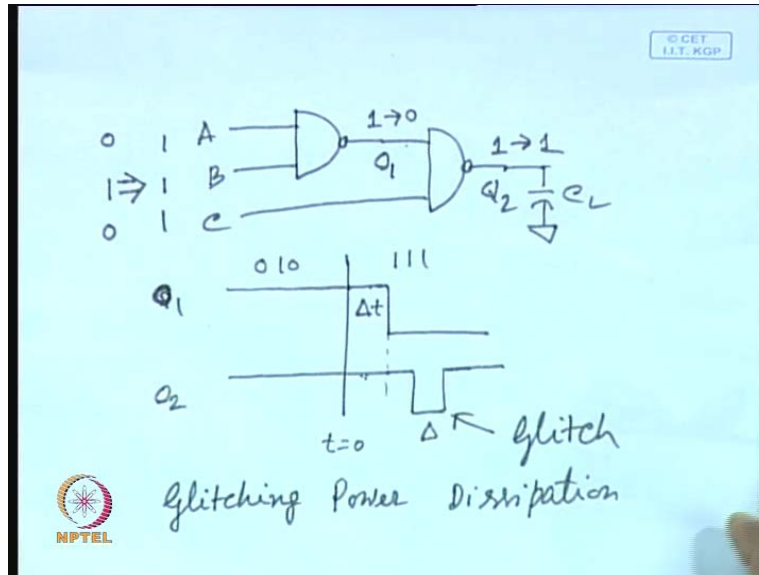 © CET
I.I.T. KGP
0 1 A 1→0 1→1
1 ⇒ 1 B O1 Q2 CL
0 1 C
010 111
O1 Δt
O2
t=0 Δ Glitch
Glitching Power Dissipation
NPTEL